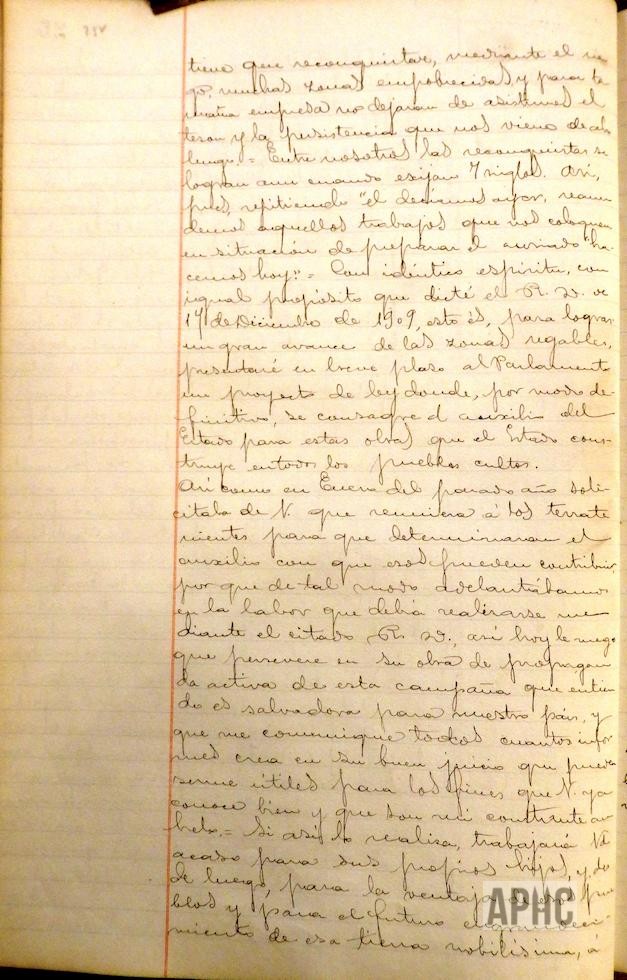 tiene que reconquistar, mediante el rie
go, muchas zonas empobrecidas y para ta
maña empresa no dejaran de asistirnos el
teson y la persistencia que nos viene de abo
lengo.= Entre nosotros las reconquistas se
logran aun cuando exijan 7 siglos. Asi,
pues, repitiendo "el deciamos ayer, reanu
demos aquellos trabajos que nos coloquen
en situación de preparar el ansiado "ha-
cemos hoy."= Con idéntico espiritu, con
igual propósito que dicté el R. D. de
17 de Diciembre de 1909, esto és, para lograr
un gran avance de las zonas regables,
presentaré en breve plazo al Parlamento
un proyecto de ley donde, por modo de-
finitivo, se consagre el auxilio del
Estado para estas obras que el Estado cons-
truye en todos los pueblos cultos.
Asi como en Enero del pasado año soli-
citaba de V. que reuniera á los terrate
nientes para que determinaran el
auxilio con que esos pueden contribuir,
por que de tal modo adelantábamos
en la labor que debia realizarse me-
diante el citado R. D., asi hoy le ruego
que persevere en su obra de propagan
da activa de esta campaña que entien
do es salvadora para nuestro pais, y
que me comunique todos cuantos infor
mes crea en su buen juicio que puedan
serme útiles para los fines que V. ya
conoce bien y que son mi constante an
helo.= Si asi lo realiza, trabajará Vd
acaso para sus propios hijos, y des
de luego, para la ventaja de esos pue
blos y para el futuro engrandeci-
miento de esa tierra nobilísima, á
APHC